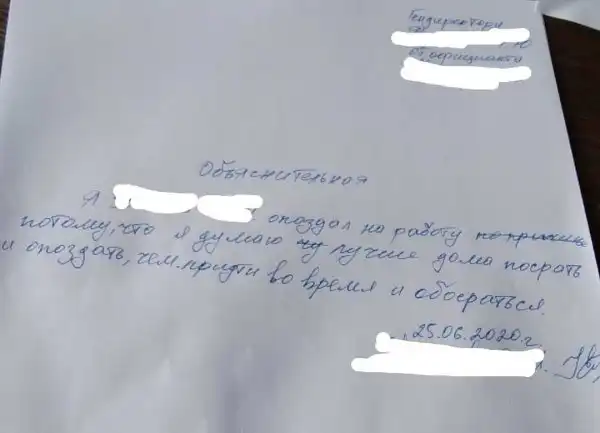 Гендиректору
от официанта
Объяснительная
Я опоздал на работу по причине
потому, что я думаю лучше дома посрать
и опоздать, чем придти во время и обосраться.
25.06.2020г.